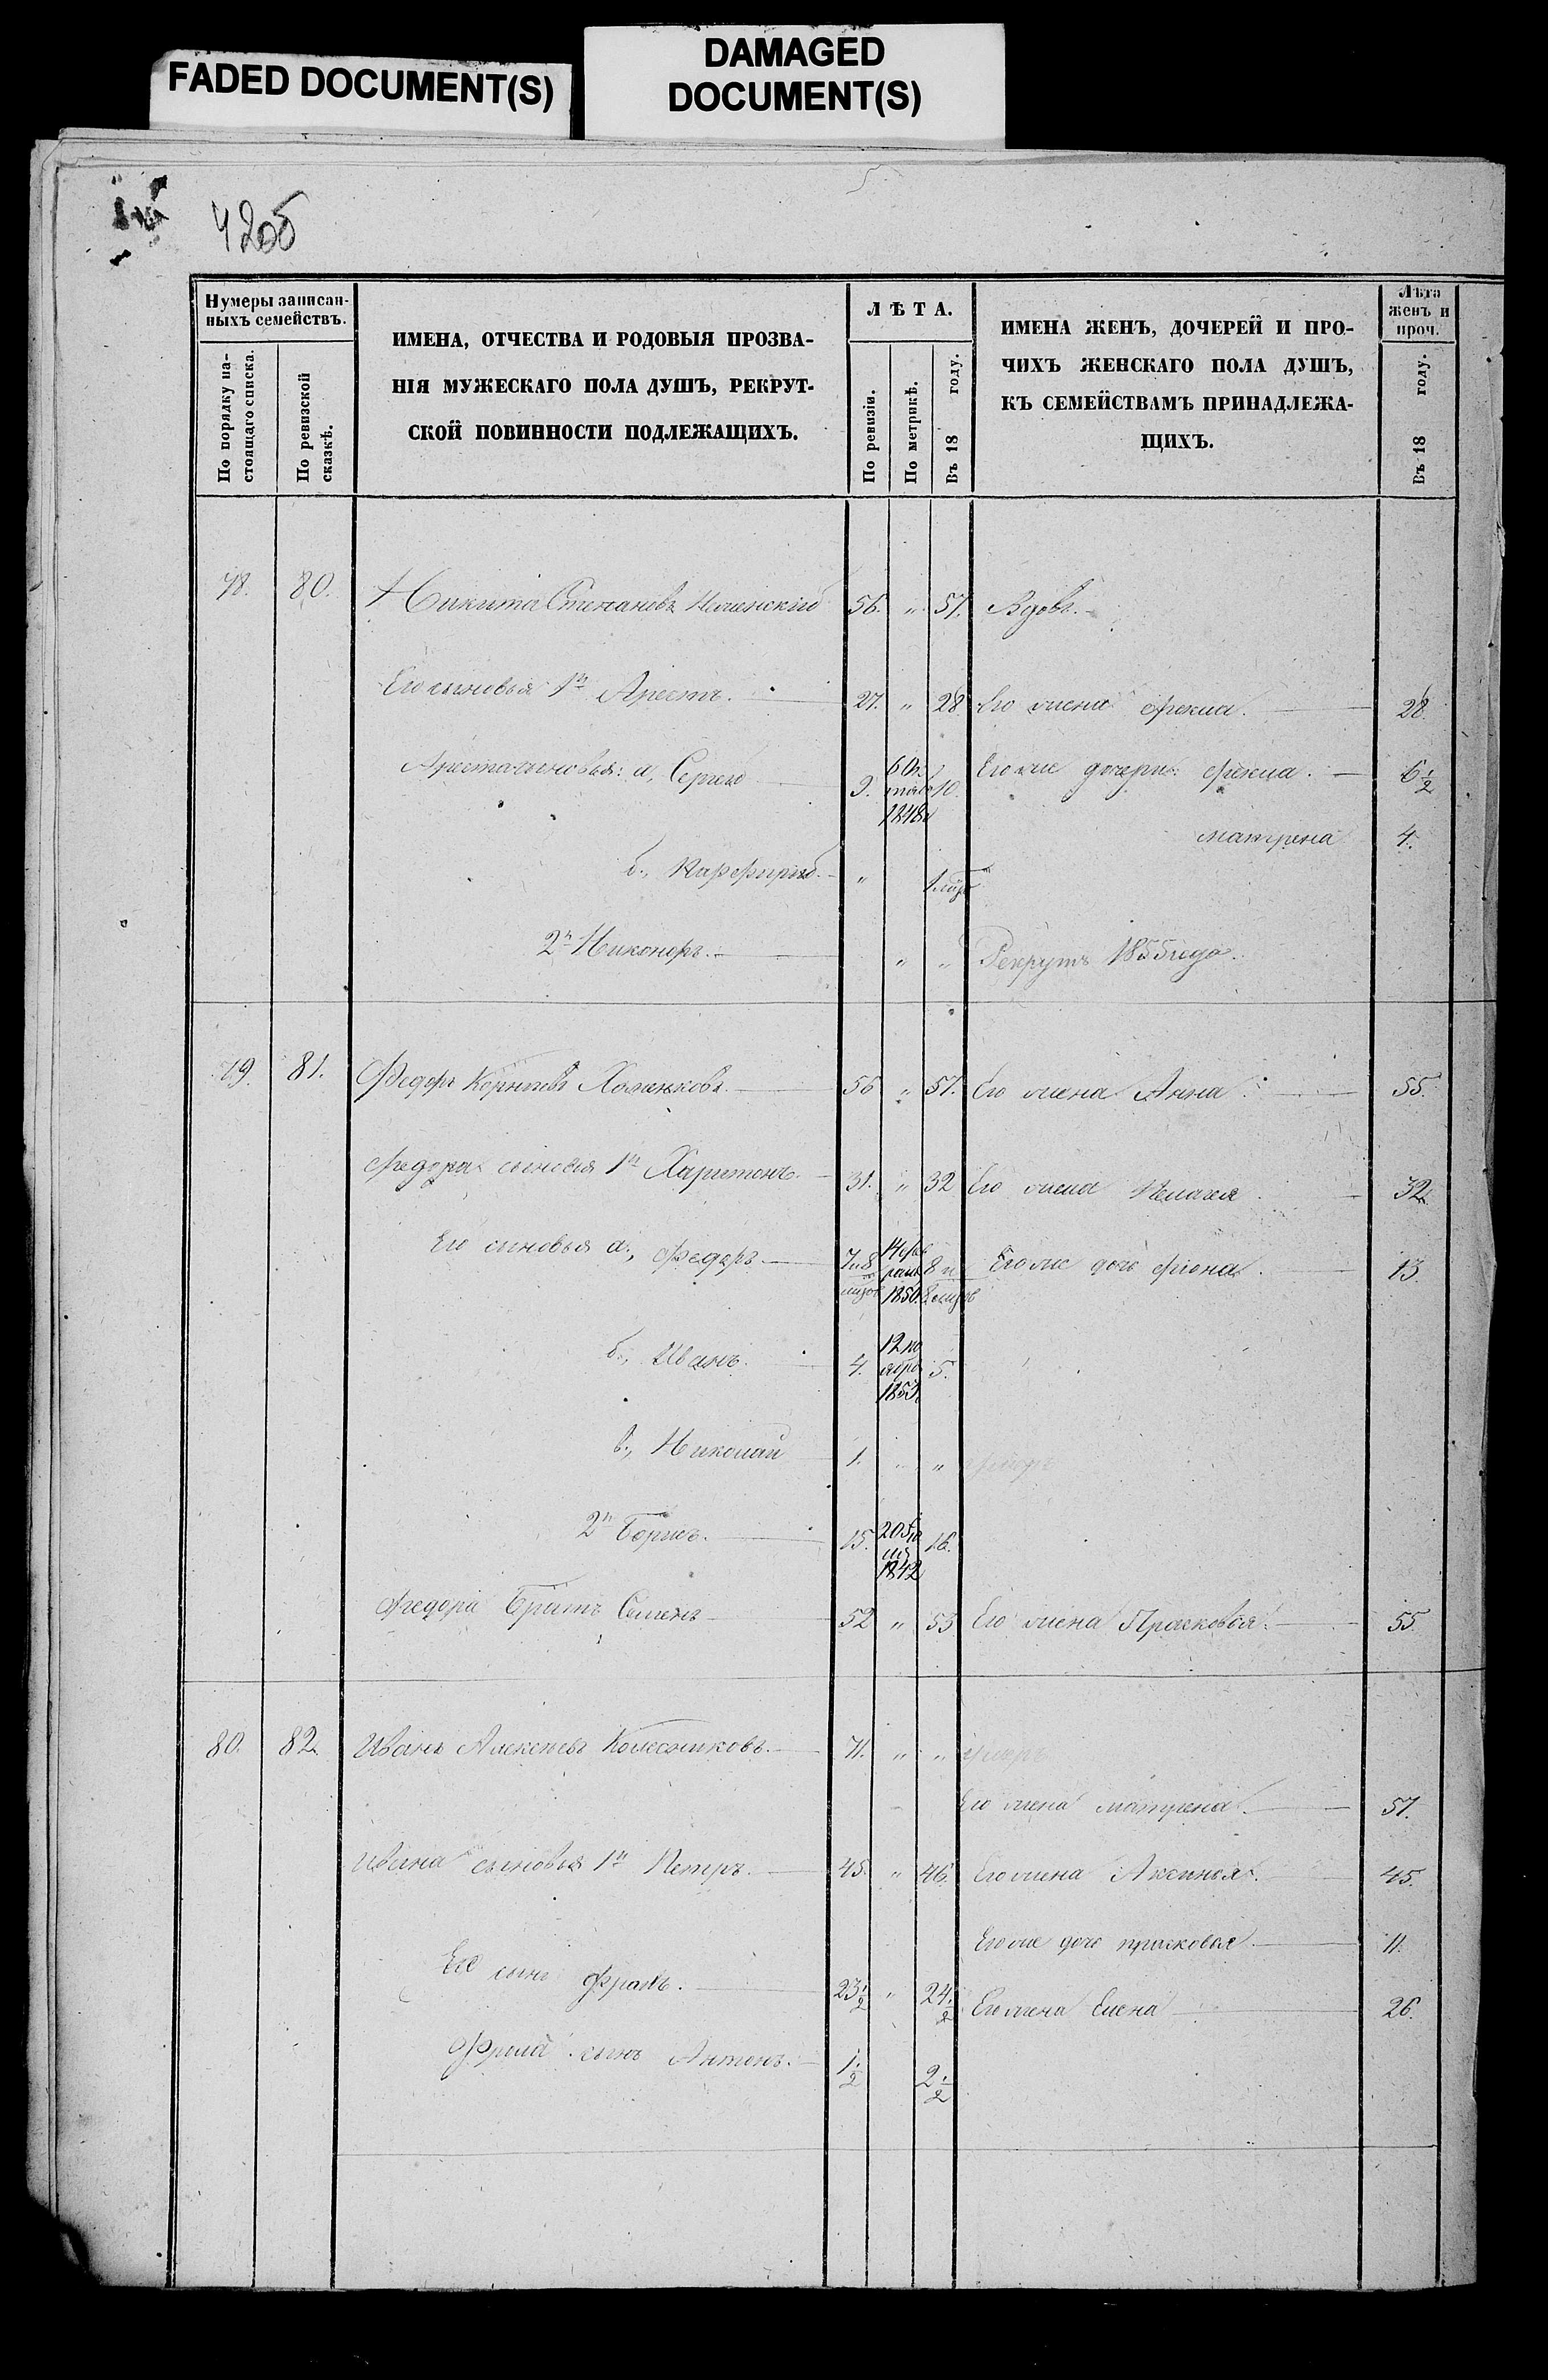 FADED DOCUMENT(S)
DAMAGED
DOCUMENT(S)
42об
Нумеры записан-
ныхъ семействъ.
По порядку на-
стоящаго списка.
По ревизской
сказкѣ.
ИМЕНА, ОТЧЕСТВА И РОДОВЫЯ ПРОЗВА-
НІЯ МУЖЕСКАГО ПОЛА ДУШЪ, РЕКРУТ-
СКОЙ ПОВИННОСТИ ПОДЛЕЖАЩИХЪ.
ЛѢТА.
По ревизіи.
По метрикѣ.
Въ 18 году.
ИМЕНА ЖЕНЪ, ДОЧЕРЕЙ И ПРО-
ЧИХЪ ЖЕНСКАГО ПОЛА ДУШЪ,
КЪ СЕМЕЙСТВАМЪ ПРИНАДЛЕЖА-
ЩИХЪ.
Лѣта
женъ и
проч.
Въ 18 году.
78. 80. Никита Степановъ 56. " 57. Вдовъ.
Его сыновья 1й Арестъ. 27. " 28 Его жена Фекла. 28.
Ареста сыновья: а, Сергей 9. 1848 10. Его же дочери: Фекла. 6 1/2
матрена 4.
б., Парфирий. "
2й Никоноръ. " " Рекрутъ 1855 года.
79. 81. Федоръ Корнѣевъ 56 " 57. Его жена Анна 55.
Федора сыновья 1й Харитонъ. 31. " 32 Его жена Пелагея 32.
Его сыновья а., Федоръ. 7 и 8 14 фев 1850. 8 и 8 Его же дочь 13.
б., Иванъ. 4. 12 но ября 1853 5.
в., Николай 1. " " умеръ
2й Борисъ. 15. 20 1842 16.
Федора братъ Семенъ 52 " 53 Его жена Прасковья. 55.
80. 82. Иванъ Алексѣевъ Колесниковъ. 71. " " умеръ
Его жена матрена. 57.
Ивана сыновья 1й Петръ. 45. " 46. Его жена Аксинья. 45.
Его же дочь прасковья 11.
Его сынъ Фролъ. 23 1/2 " 24 1/2 Его жена Елена 26.
Фрола сынъ Антонъ. 1 1/2 2 1/2